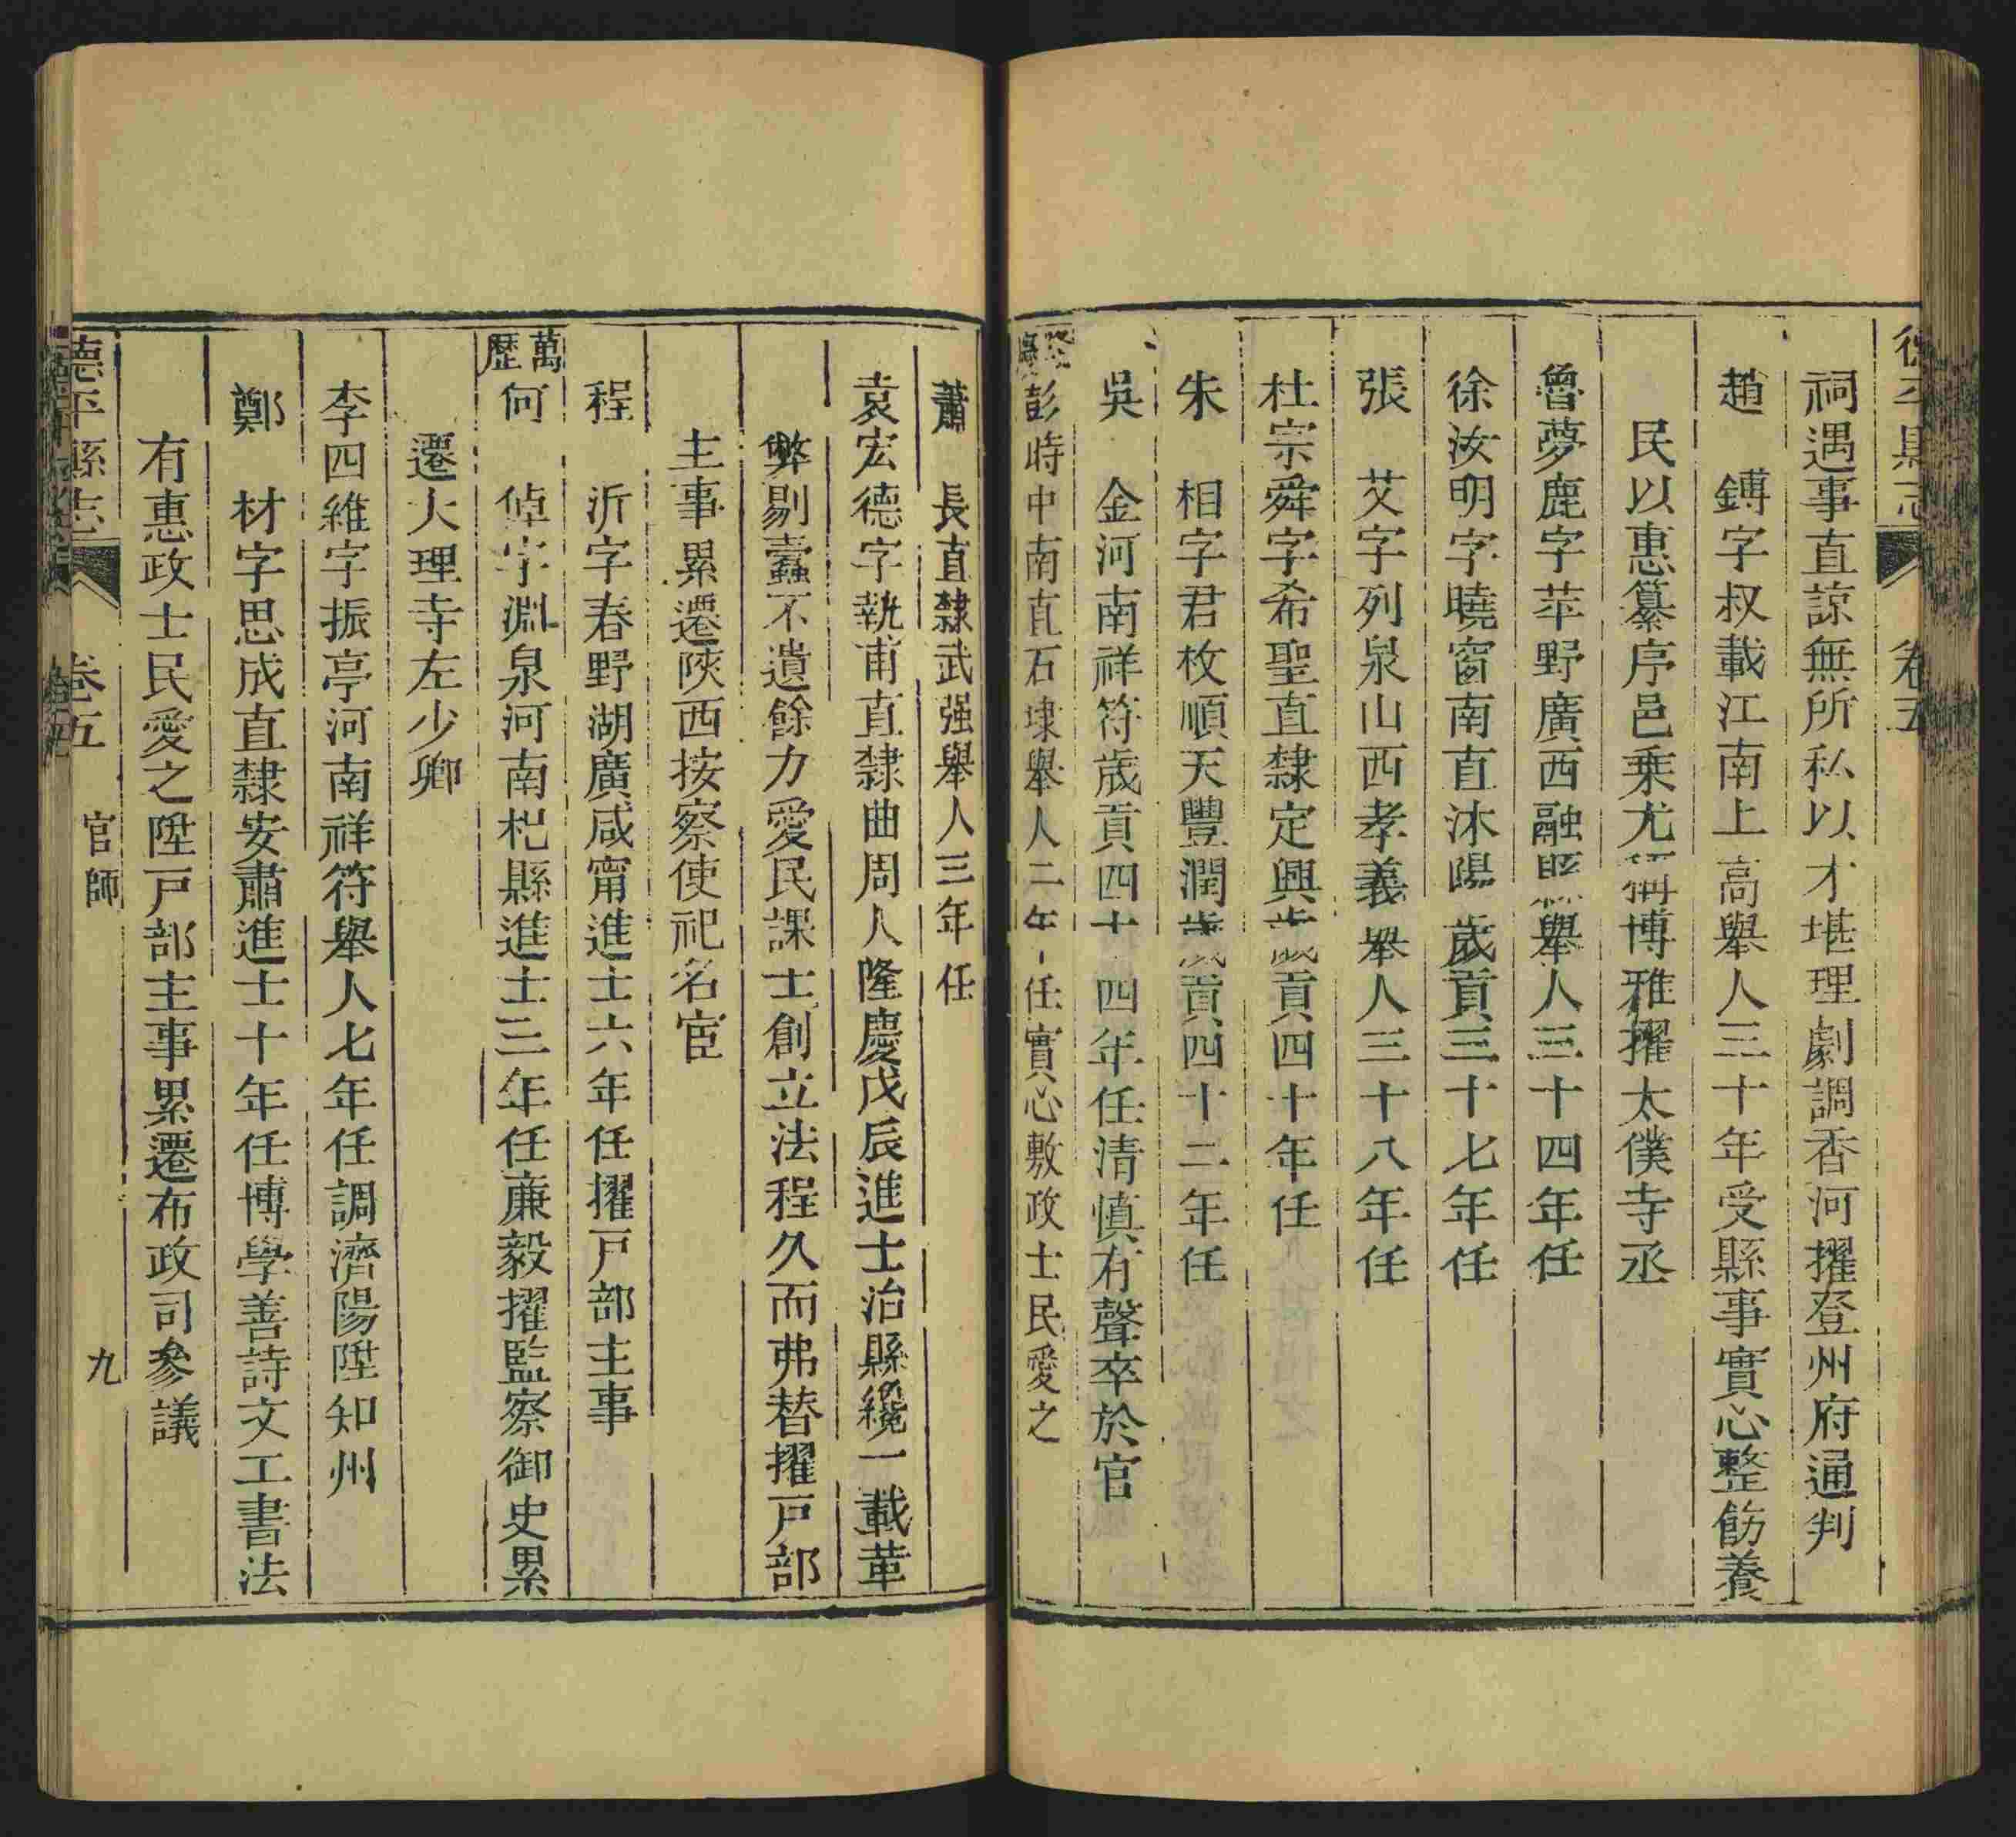 祠遇事直諒無所私以才堪理劇調香河擢登州府通判
趙鎛字叔載江南上高舉人三十年受縣事實心整飭養
民以惠纂序邑乗尤稱博雅擢太僕寺丞
魯夢鹿字苹野廣西融縣舉人三十四年任
徐汝明字曉窗南直沐陽歲貢三十七年任
張艾字列泉山西孝義舉人三十八年任
杜宗舜字希聖直隸定興歲貢四十年任
朱相字君枚順天豐潤歲貢四十二年任
吳金河南祥符歲貢四十四年任清慎有聲卒於官
彭時中南直石埭舉人二年任實心敷政士民愛之
蕭長直隸武强舉人三年任
袁宏德字執甫直隸曲周人隆慶戊辰進士治縣纔一載革
弊剔蠹不遺餘力愛民課士創立法程久而弗替擢戸部
主事累遷陝西按察使祀名宦
程沂字春野湖廣咸甯進士六年任擢戸部主事
萬歷何倬字淵泉河南杞縣進士三年任廉毅擢監察御史累
遷大理寺左少卿
李四維字振亭河南祥符舉人七年任調濟陽陞知州
鄭材字思成直隸安肅進士十年任博學善詩文工書法
有惠政士民愛之陞戸部主事累遷布政司參議
德平縣志 卷五 官師 九